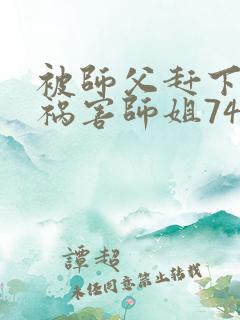 被師父赶下
祸害師姐74
譚超
未经同意禁止转载